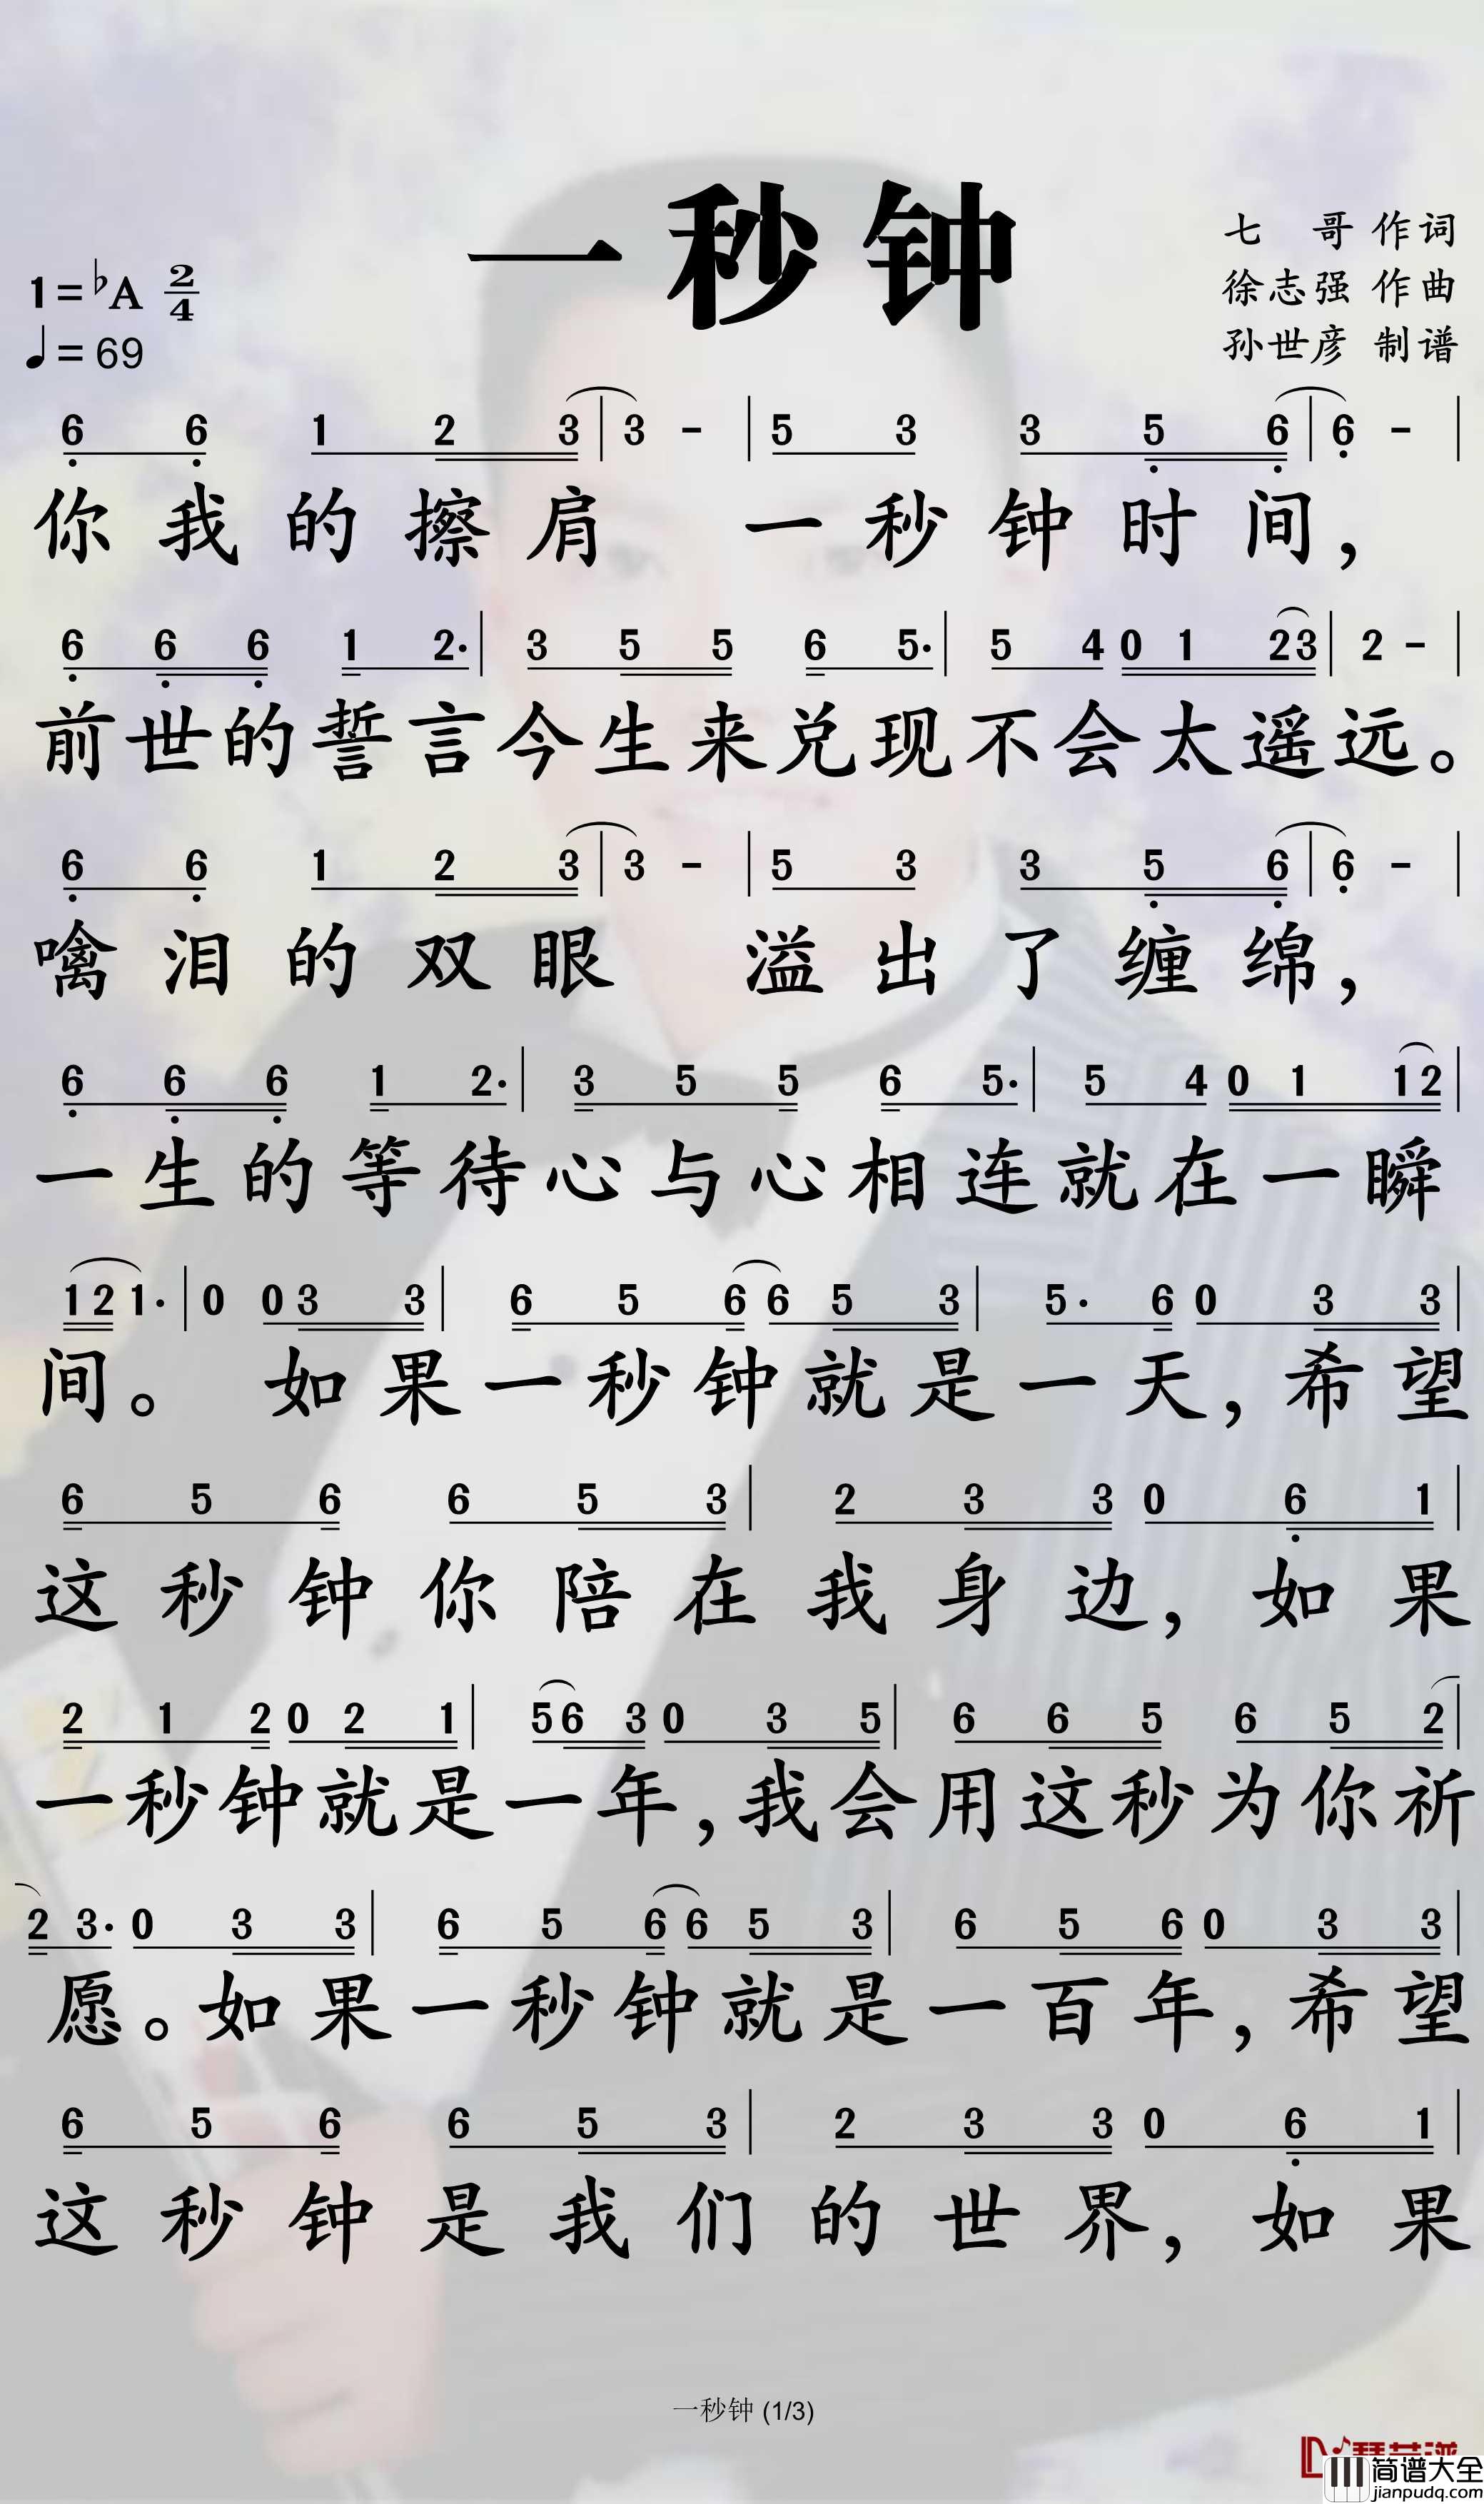 一秒钟
七 哥 作词
徐志强 作曲
孙世彦 制谱
1=♭A 2/4
♩=69
6 6 1 2 3 | 3 - | 5 3 3 5 6 | 6 - |
你我的擦肩 一秒钟时间，
6 6 6 1 2· | 3 5 5 6 5· | 5 4 0 1 2 3 | 2 - |
前世的誓言今生来兑现不会太遥远。
6 6 1 2 3 | 3 - | 5 3 3 5 6 | 6 - |
噙泪的双眼 溢出了缠绵，
6 6 6 1 2· | 3 5 5 6 5· | 5 4 0 1 1 2 |
一生的等待心与心相连就在一瞬
1 2 1· | 0 0 3 3 | 6 5 6 6 5 3 | 5· 6 0 3 3 |
间。 如果一秒钟就是一天，希望
6 5 6 6 5 3 | 2 3 3 0 6 1 |
这秒钟你陪在我身边，如果
2 1 2 0 2 1 | 5 6 3 0 3 5 | 6 6 5 6 5 2 |
一秒钟就是一年，我会用这秒为你祈
2 3· 0 3 3 | 6 5 6 6 5 3 | 6 5 6 0 3 3 |
愿。如果一秒钟就是一百年，希望
6 5 6 6 5 3 | 2 3 3 0 6 1 |
这秒钟是我们的世界，如果
一秒钟 (1/3)
简谱大全
jianpudq.com